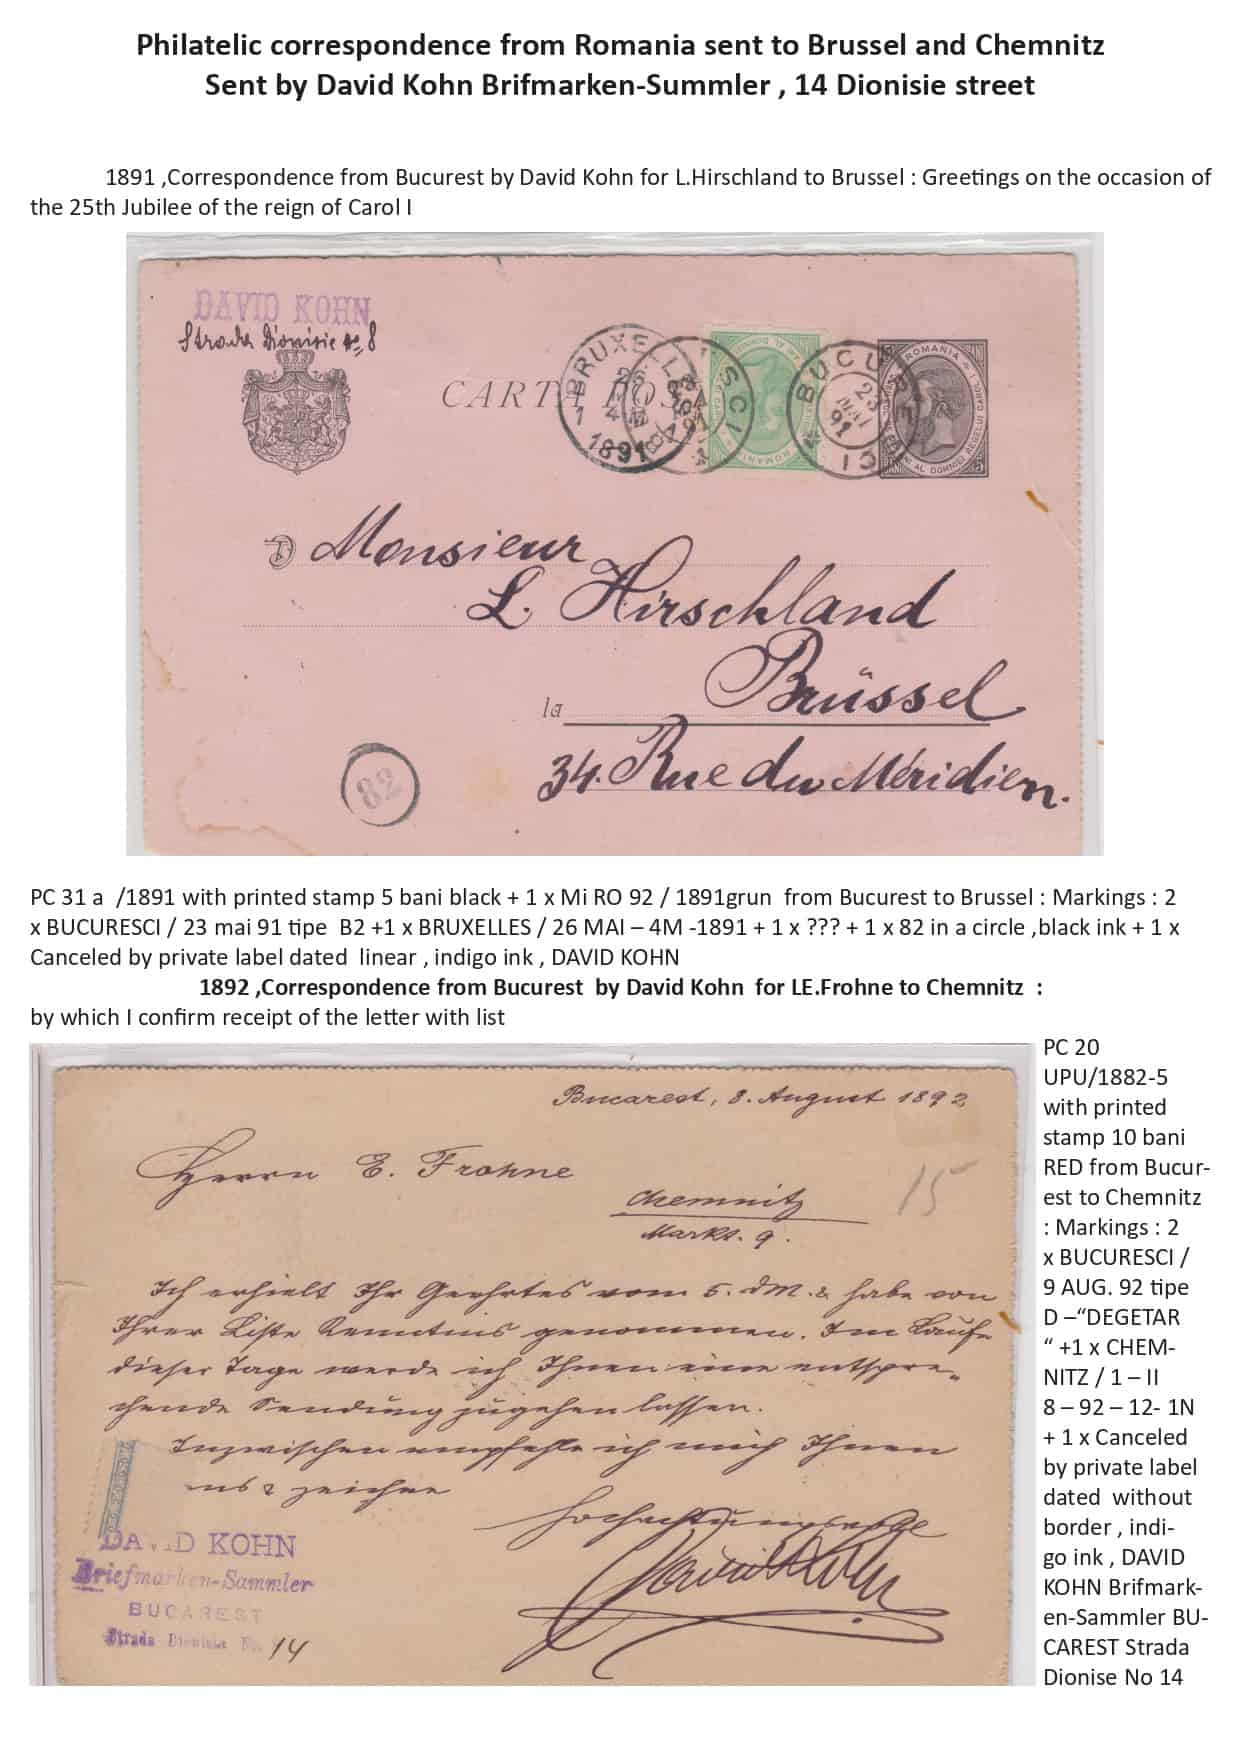 Philatelic correspondence from Romania sent to Brussel and Chemnitz
Sent by David Kohn Brifmarken-Summler , 14 Dionisie street
1891 ,Correspondence from Bucurest by David Kohn for L.Hirschland to Brussel : Greetings on the occasion of
the 25th Jubilee of the reign of Carol I
DAVID KOHN
Strada Dionisie No 8
CARTA POS
BRUXELLES
26
4 M
1
1891
BUCURESCI
23
MAI
91
ROMANIA
Monsieur
L. Hirschland
la Brüssel
34. Rue du Méridien.
82
PC 31 a /1891 with printed stamp 5 bani black + 1 x Mi RO 92 / 1891grun from Bucurest to Brussel : Markings : 2
x BUCURESCI / 23 mai 91 tipe B2 +1 x BRUXELLES / 26 MAI – 4M -1891 + 1 x ??? + 1 x 82 in a circle ,black ink + 1 x
Canceled by private label dated linear , indigo ink , DAVID KOHN
1892 ,Correspondence from Bucurest by David Kohn for LE.Frohne to Chemnitz :
by which I confirm receipt of the letter with list
Bucarest, 8. August 1892
Herrn E. Frohne
Chemnitz
Markt. 9.
15
Ich erhielt Ihr Geehrtes vom 5. dM. & habe von
Ihrer Liste Kenntnis genommen. Im Laufe
dieser Tage werde ich Ihnen eine entspre-
chende Sendung zugehen lassen.
Inzwischen empfehle ich mich Ihnen
uns & zeichne
Hochachtungsvoll
David Kohn
DAVID KOHN
Briefmarken-Sammler
BUCAREST
Strada Dionisie No. 14
PC 20
UPU/1882-5
with printed
stamp 10 bani
RED from Bucur-
est to Chemnitz
: Markings : 2
x BUCURESCI /
9 AUG. 92 tipe
D –“DEGETAR
“ +1 x CHEM-
NITZ / 1 – II
8 – 92 – 12- 1N
+ 1 x Canceled
by private label
dated without
border , indi-
go ink , DAVID
KOHN Brifmark-
en-Sammler BU-
CAREST Strada
Dionise No 14